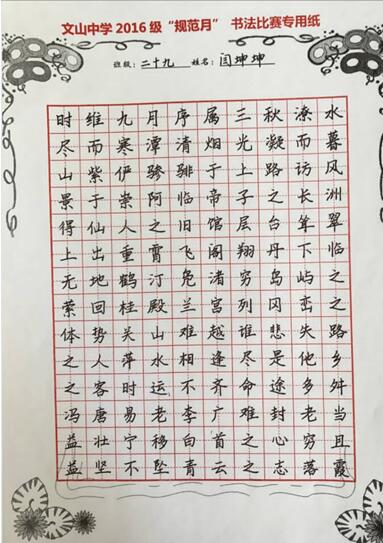 文山中学2016级“规范月” 书法比赛专用纸
班级：二十九 姓名：闫坤坤
时维九月序属三秋潦水
尽而寒潭清烟光凝而暮
山紫俨骖騑于上路访风
景于崇阿临帝子之长洲
得仙人之旧馆层台耸翠
上出重霄飞阁翔丹下临
无地鹤汀凫渚穷岛屿之
萦回桂殿兰宫列冈峦之
体势关山难越谁悲失路
之人萍水相逢尽是他乡
之客时运不齐命途多舛
冯唐易老李广难封老当
益壮宁移白首之心穷且
益坚不坠青云之志落霞